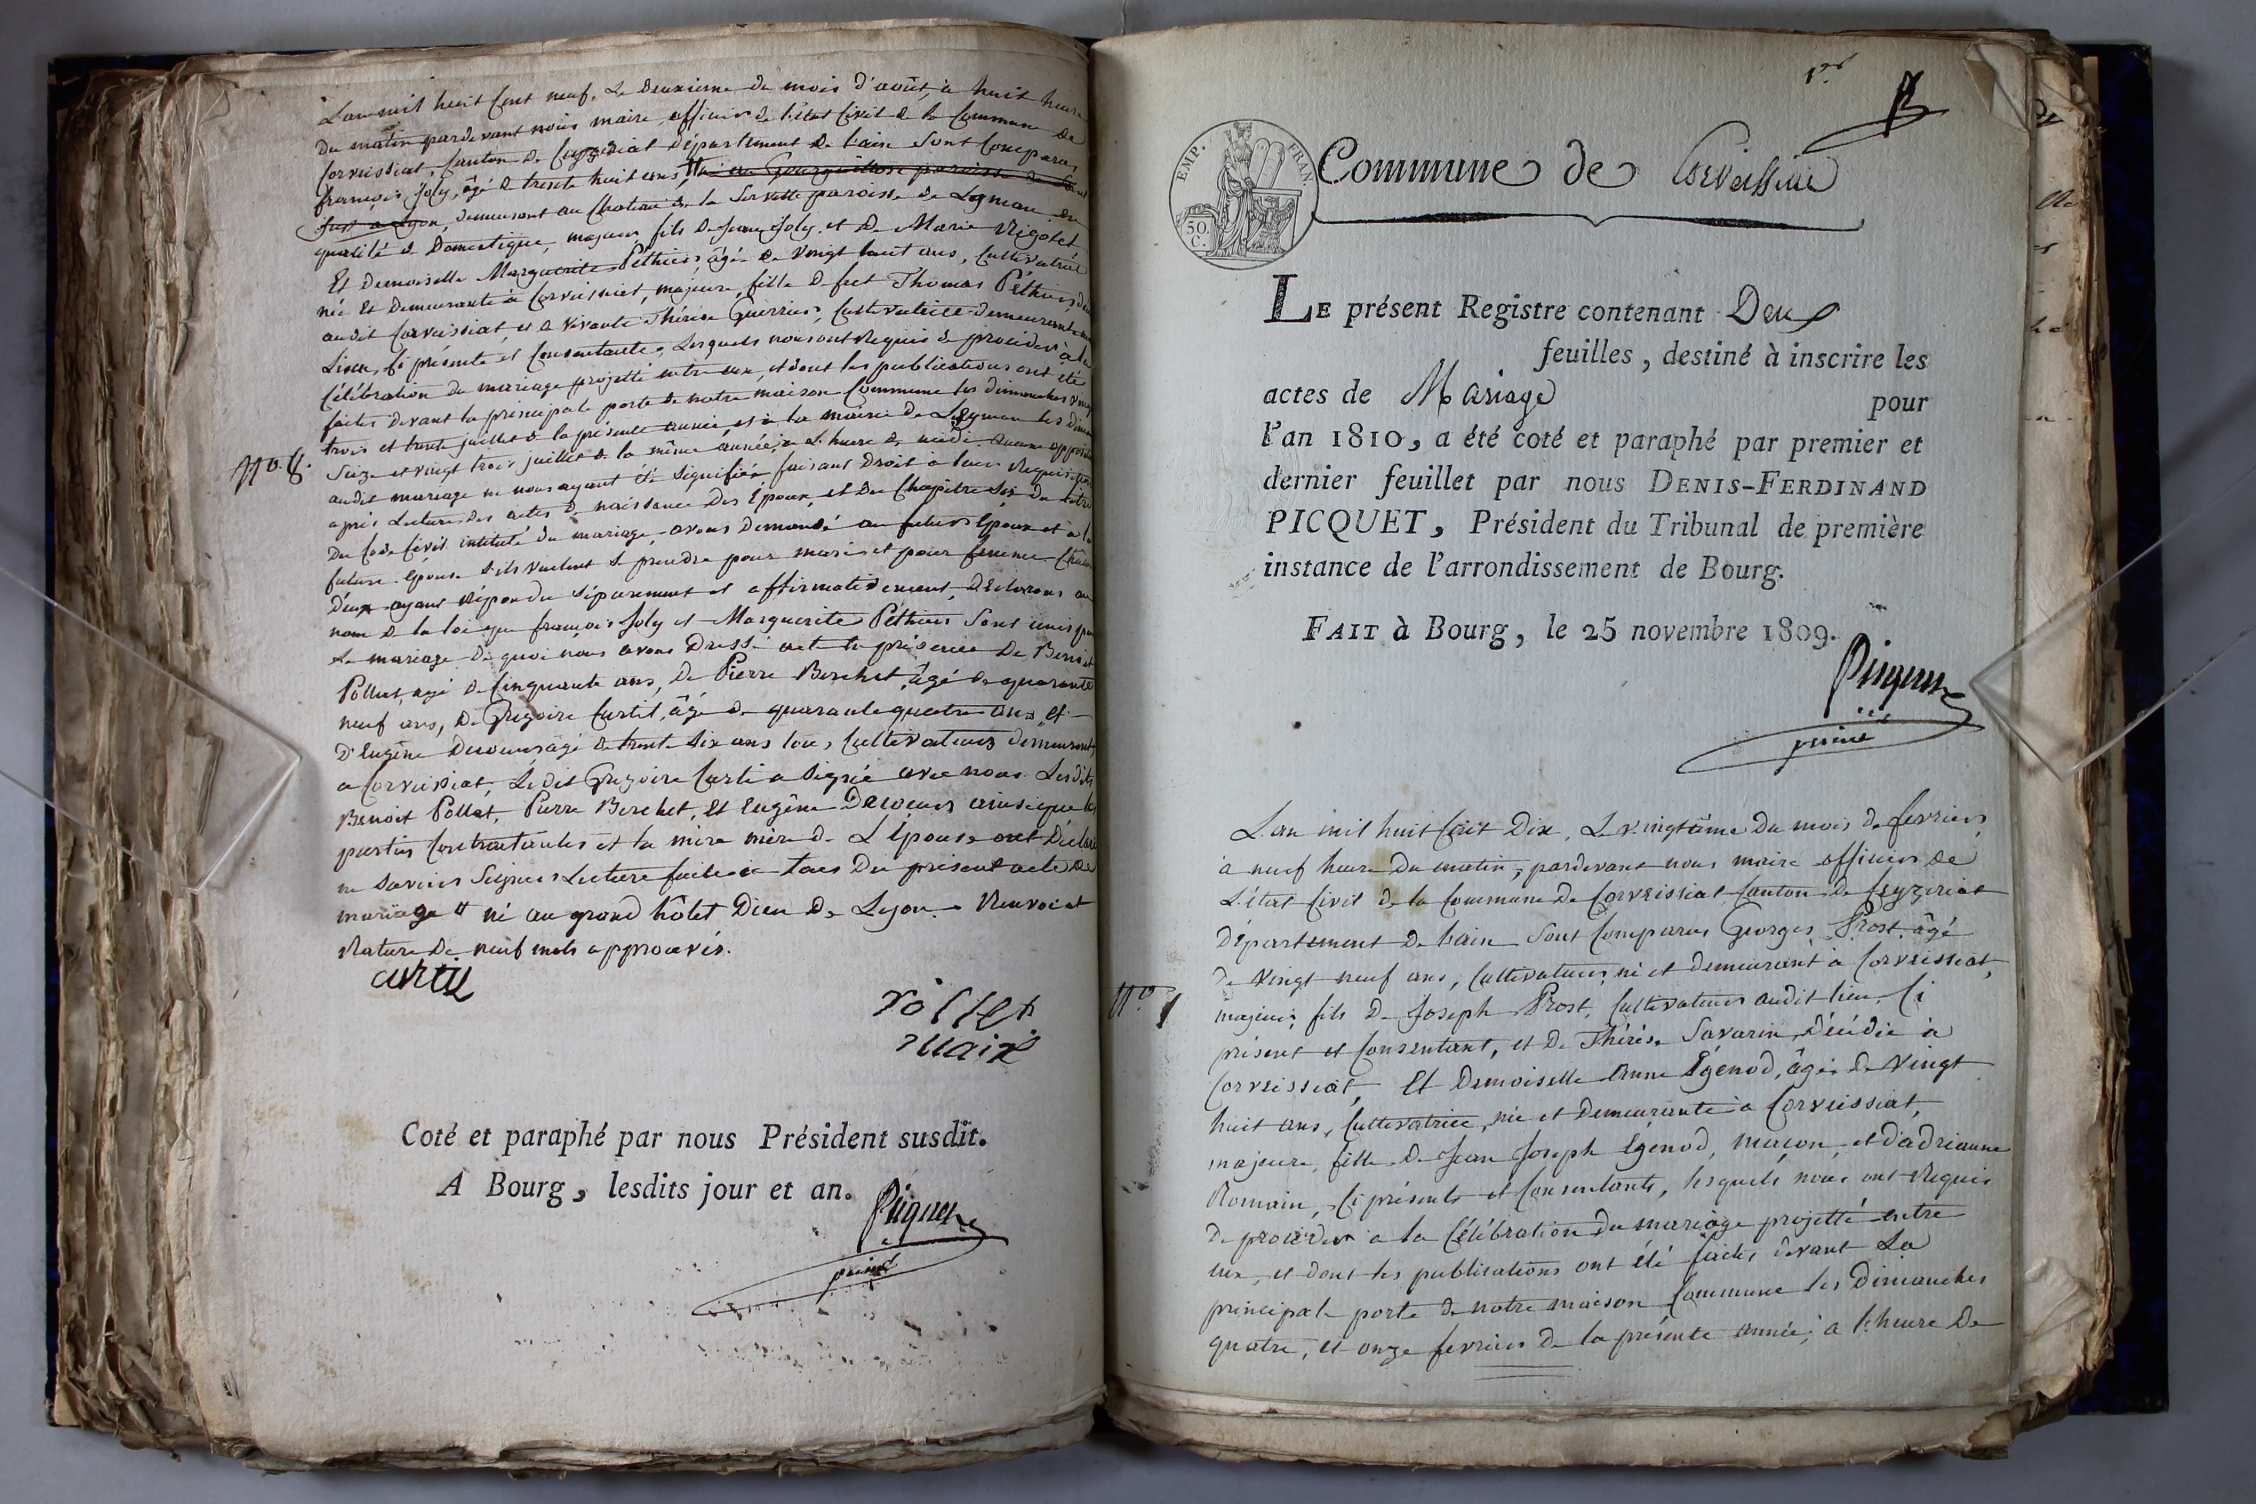 L'an mil huit Cent neuf, Le deuxieme du mois d'août, à huit heure
du matin pardevant nous maire, officier de l'état Civil de la Commune de
Corveissiat, Canton de Ceyzeriat département de L'ain sont Comparu,
françois Joly, âgé de trente huit ans, né au Gourguillon paroisse de Saint
just a Lyon, demeurant au Chateau de la Servette paroisse de Leyman, en
qualité de Domestique, majeur fils de Jean Joly, et de Marie Rigolet
Et Demoiselle Marguerite Péthier, âgée de vingt huit ans, Cultivatrice
née Et Demeurante à Corveissiat, majeure, fille de feu Thomas Péthier,
audit Corveissiat, et de vivante Thérèse Guerrier, Cultivatrice demeurante au
Lieu, Ci présente et Consentante, Lesquels nous ont Requis de procéder à la
Célébration du mariage projetté entre eux, et dont les publications ont été
faites devant la principale porte de notre maison Commune les dimanches vingt
trois et trente juillet de la présente année, et à la mairie de Leyman les diman
Seize et vingt trois juillet de la même année, a L'heure de midi aucune opposition
audit mariage ne nous ayant été signifiée faisant Droit à leur Requisition
après Lecture des actes de naissance des Époux et du Chapitre six du titre
Du Code Civil intitulé du mariage, avons demandé au futur Époux et à la
future Épouse s'ils veulent se prendre pour mari et pour femme Chacun
D'eux ayant répondu séparément et affirmativement, Déclarons au
nom de la loi que françois Joly et Marguerite Péthier Sont unis par
Le mariage. De quoi nous avons Dressé acte en présence De Benoit
Pollet, agé de Cinquante ans, de Pierre Berchet, âgé de quarante
neuf ans, De Grégoire Curtil, âgé de quarante quatre ans, et
D'Eugène Decoeur âgé de trente six ans tous Cultivateurs demeurant
a Corveissiat, Ledit Gregoire Curti a signé avec nous. Lesdits
Benoit Pollet, Pierre Berchet, Et Eugène Decoeur ainsi que les
parties Contractantes et la mère mère de L'Épouse ont Déclaré
ne savoir Signer Lecture faite à tous Du présent acte de
mariage # né au grand hôtel Dieu De Lyon. Renvoi et
Rature De neuf mots approuvés.
No. 8.
curtil
rollet
maire
Coté et paraphé par nous Président susdit.
A Bourg, lesdits jour et an.
Picquet
président
1er
Commune de Corveissiat
EMP. FRAN.
50. C.
LE présent Registre contenant Deux
feuilles, destiné à inscrire les
actes de Mariage pour
l'an 1810, a été coté et paraphé par premier et
dernier feuillet par nous DENIS-FERDINAND
PICQUET, Président du Tribunal de première
instance de l'arrondissement de Bourg.
FAIT à Bourg, le 25 novembre 1809.
Picquet
président
L'an mil huit Cent Dix, Le vingtième Du mois de fevrier
à neuf heure Du matin, pardevant nous maire officier de
L'état Civil de la Commune De Corveissiat Canton de Ceyzeriat
département de L'ain sont Comparus Georges Prost, âgé
de vingt neuf ans, Cultivateur, né et demeurant à Corveissiat,
majeur, fils De Joseph Prost, Cultivateur audit lieu, Ci
présent et Consentant, et De Thérèse Savarin, Décédée à
Corveissiat, Et Demoiselle Anne Egenod, âgée de Vingt
huit ans, Cultivatrice, née et demeurante à Corveissiat,
majeure, fille De Jean Joseph Egenod, maçon, et d'adrianne
Romain, Ci présents et Consentants, lesquels nous ont Requis
de procéder a la Célébration du mariage projetté entre
eux, et dont les publications ont été faites devant La
principale porte de notre maison Commune les Dimanches
quatre, et onze fevrier de la présente année, a l'heure De
No. 1